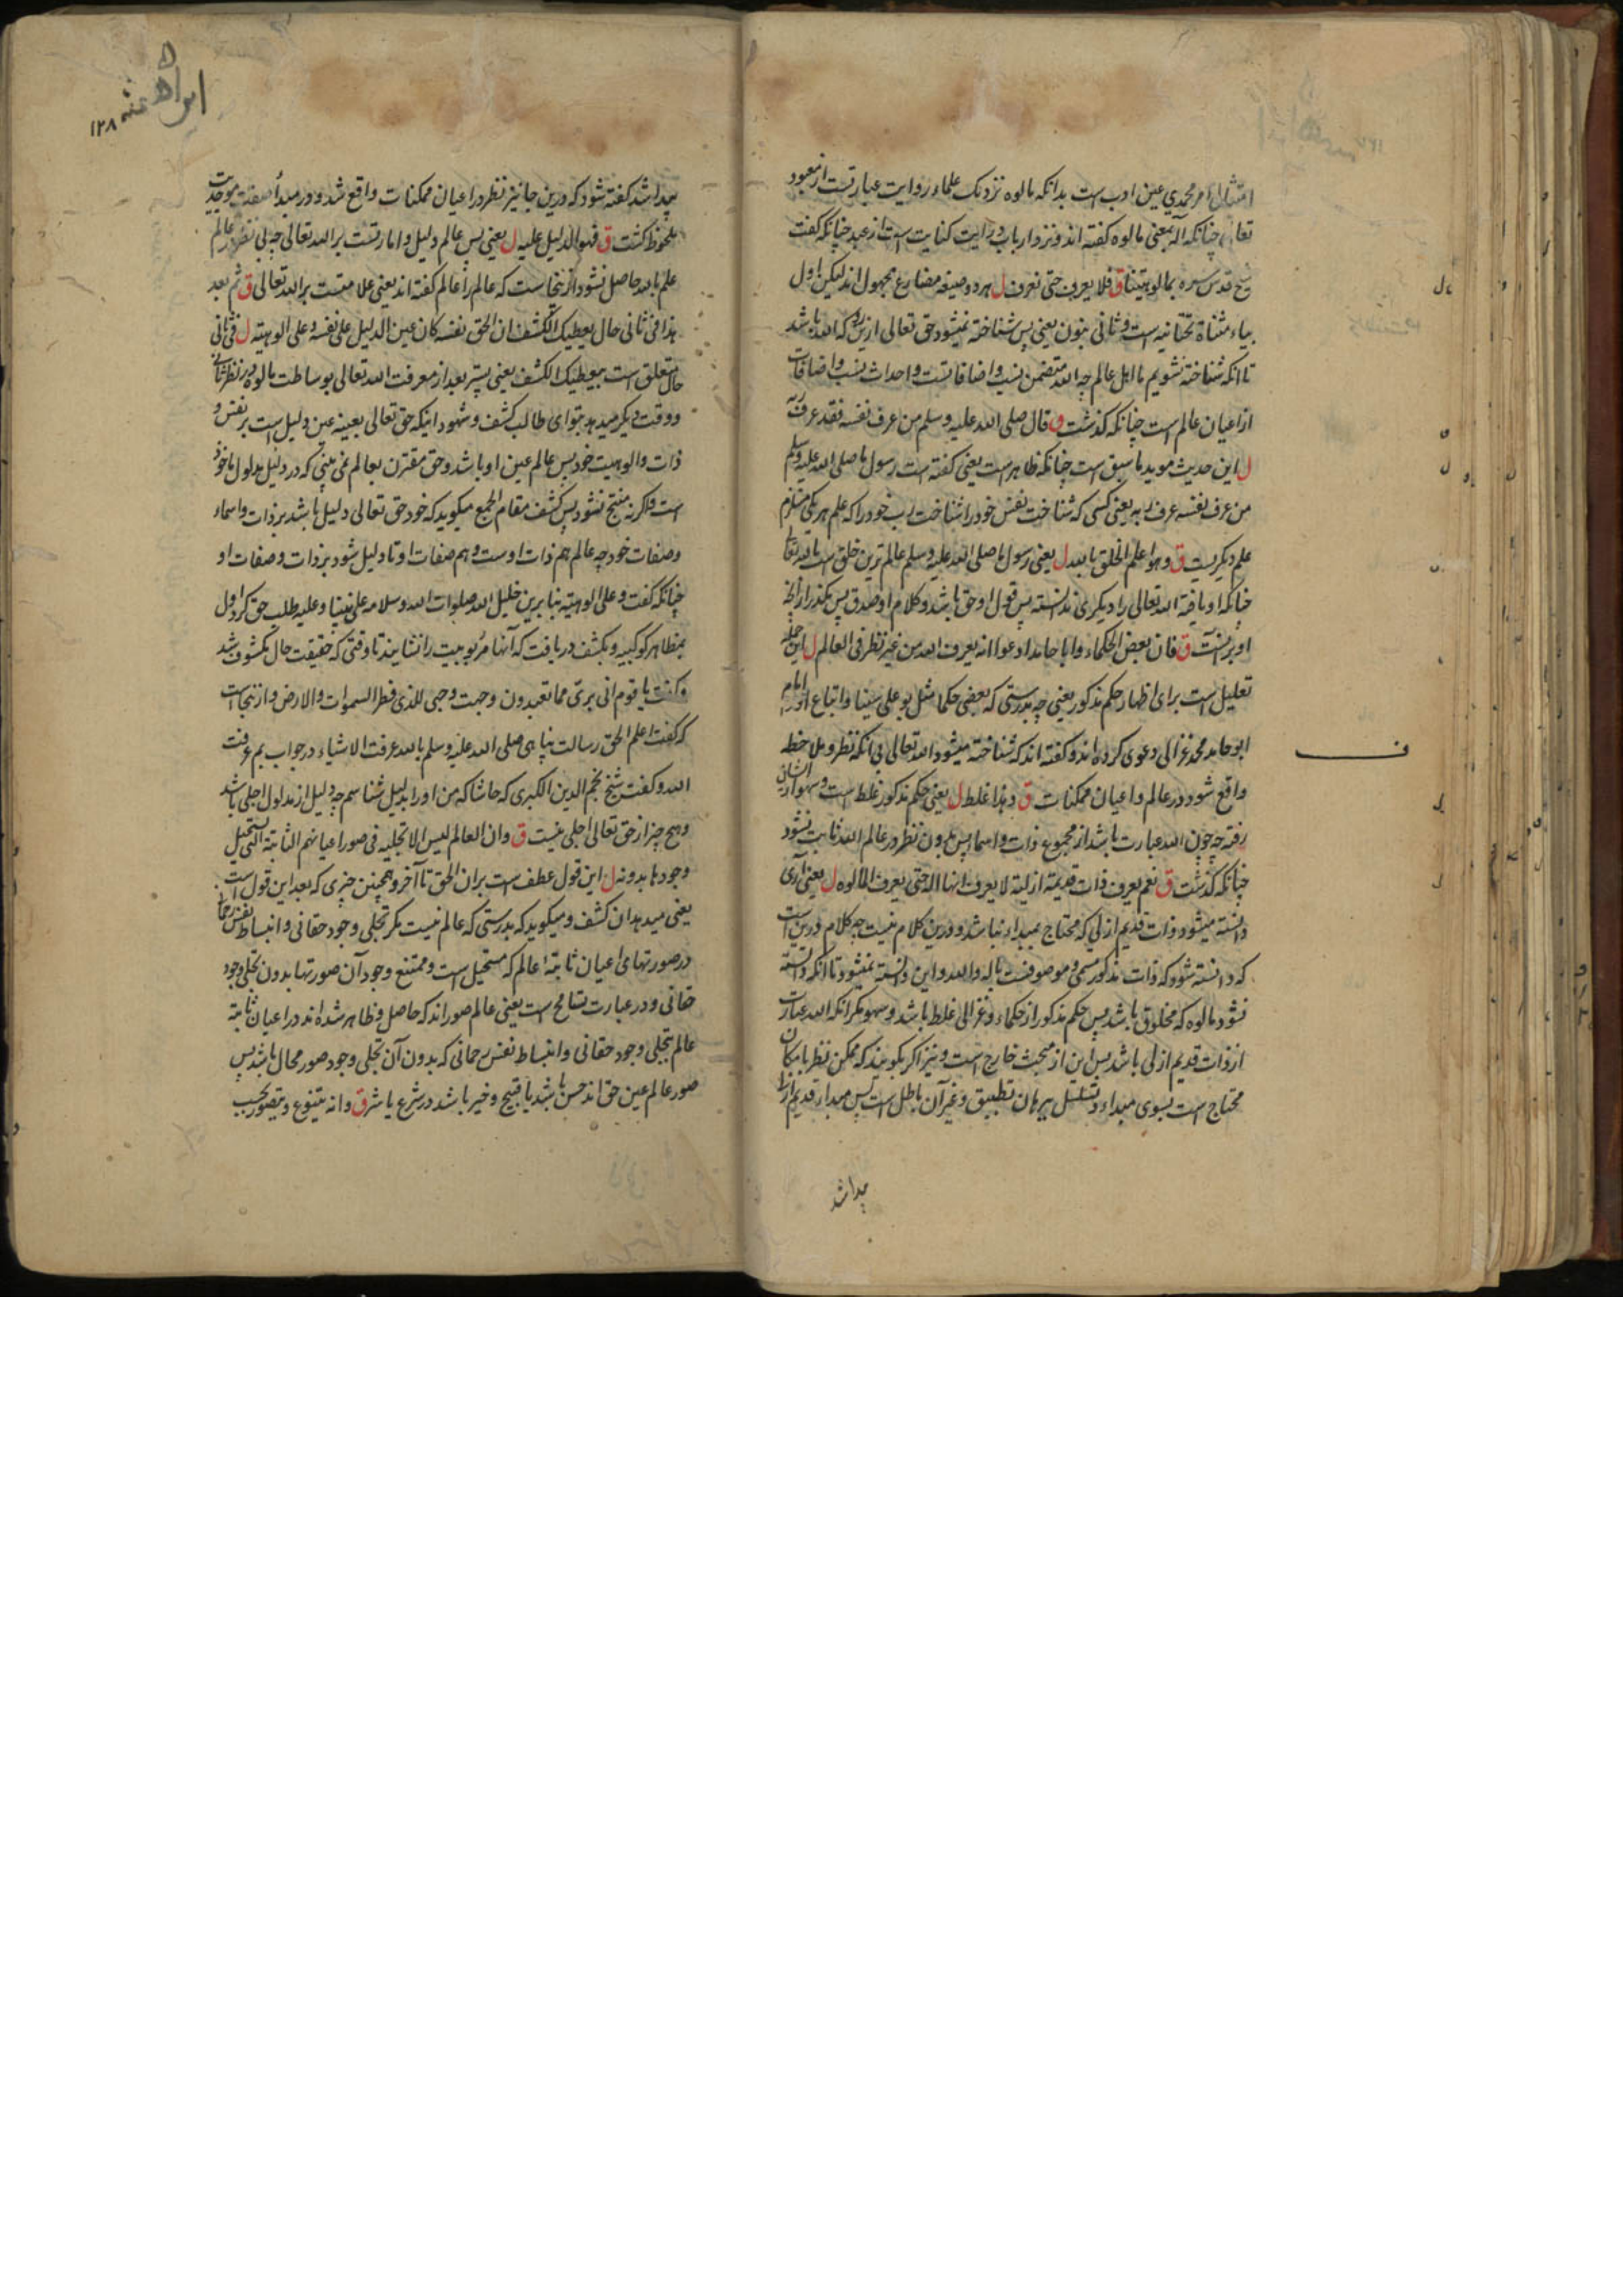 امتثال امر محمدی عین ادب است بدانکه مالوه نزدیک علماء روایت عبارتست از معبود
تعالی چنانکه آله بمعنی مالوه کفته اند و نزد ارباب درایت کنایت است از عبد چنانکه کفت
شیخ قدس سره بمالوهیتنا ق فلا یعرف حتی نعرف ل هر دو صیغه مضارع مجهول اند لیکن اول
بیاء مثناة تحتانیه است و ثانی بنون یعنی پس شناخته نمیشود حق تعالی ازین که الله باشد
تا انکه شناخته نشویم ما اهل عالم چه الله متضمن نسب و اضافاتست و احداث نسب و اضافات
از اعیان عالم است چنانکه کذشت و قال صلی الله علیه وسلم من عرف نفسه فقد عرف ربه
ل این حدیث موید ما سبق است چنانکه ظاهر است یعنی کفته است رسول ما صلی الله علیه وسلم
من عرف نفسه عرف ربه یعنی کسی که شناخت نفس خود را شناخت رب خود را که علم هر یکی مستلزم
علم دیکریست ق و هو اعلم الخلق بالله ل یعنی رسول ما صلی الله علیه وسلم عالم ترین خلق است بالله تعالی
چنانکه او یافته الله تعالی را دیکری ندانسته پس قول او حق باشد و کلام او صدق پس مکذر از آنچه
او برانست ق فان بعض الحکماء و ابا حامد ادعوا انه یعرف الله من غیر نظر فی العالم ل این جمله
تعلیل است برای اظهار حکم مذکور یعنی چه بدرستی که بعضی حکما مثل بو علی سینا و اتباع او و امام
ابو حامد محمد غزالی دعوی کرده اند و کفته اند که شناخته میشود الله تعالی بی انکه نظر و ملاحظه
واقع شود در عالم و اعیان ممکنات ق و هذا غلط ل یعنی حکم مذکور غلط است و سهو از ایشان
رفته چه چون الله عبارت باشد از مجموع ذات و اسما پس بدون نظر در عالم الله ثابت نشود
چنانکه کذشت ق نعم یعرف ذات قدیمة ازلیة لا یعرف انها اله حتی یعرف المالوه ل یعنی آری
دانسته میشود ذات قدیم ازلی که محتاج بمبداء نباشد و درین کلام نیست چه کلام درین است
که دانسته شود که ذات مذکور مسمی و موصوفست باله والله و این دانسته نمیشود تا انکه دانسته
نشود مالوه که مخلوق باشد پس حکم مذکور از حکماء و غزالی غلط باشد و سهو مکر انکه الله عبارت
از ذات قدیم ازلی باشد پس این از مبحث خارج است و نیز اکر بکویند که ممکن نظر بامکان
محتاج است بسوی مبداء و تسلسل ببرهان تطبیق و غیر آن باطل است پس مبداء قدیم ازلی
پیدا شد
۱۲۸
پیدا شد کفته شود که درین جا نیز نظر در اعیان ممکنات واقع شد و در مبدأ صفت موجدیت
ملحوظ کشت ق فهو الدلیل علیه ل یعنی پس عالم دلیل و امارتست بر الله تعالی چه بی نظر در عالم
علم بالله حاصل نشود از ینجاست که عالم را عالم کفته اند یعنی علامتست بر الله تعالی ق ثم بعد
هذا فی ثانی حال یعطیک الکشف ان الحق نفسه کان عین الدلیل علی نفسه و علی الوهیته ل فی ثانی
حال متعلق است بیعطیک الکشف یعنی پستر بعد از معرفت الله تعالی بوساطت مالوه در نظر ثانی
و وقت دیکر میدهد بتو ای طالب کشف و شهود اینکه حق تعالی بعینه عین دلیل است بر نفس و
ذات و الوهیت خود پس عالم عین او باشد و حق مقترن بعالم نمی بینی که در دلیل مدلول ماخوذ
است و اکر نه منتج نشود پس کشف مقام الجمع میکوید که خود حق تعالی دلیل باشد بر ذات و اسماء
و صفات خود چه عالم هم ذات اوست و هم صفات او تا دلیل شود بر ذات و صفات او
چنانکه کفت و علی الوهیته بنا برین خلیل الله صلوات الله و سلامه علی نبینا و علیه طلب حق کرد اول
بمظاهر کوکبیه و بکشف دریافت که آنها مربوبیت را نشایند تا وقتی که حقیقت حال مکشوف شد
و کفت یا قوم انی بری مما تعبدون وجهت وجهی للذی فطر السموات والارض و از ینجاست
که کفت اعلم الحق رسالت پناهی صلی الله علیه وسلم بالله عرفت الاشیاء در جواب بم عرفت
الله و کفت شیخ نجم الدین الکبری که حاشا که من او را بدلیل شناسم چه دلیل از مدلول اجلی باشد
و هیچ چیز از حق تعالی اجلی نیست ق و ان العالم لیس الا تجلیه فی صور اعیانهم الثابتة التی یستحیل
وجودها بدونه ل این قول عطف است بر ان الحق تا آخر و همچنین چیزی که بعد این قول است
یعنی میدهد ان کشف و میکوید که بدرستی که عالم نیست مکر تجلی وجود حقانی و انبساط نفس رحمانی
در صورتهای اعیان ثابته عالم که مستحیل است و ممتنع وجود آن صورتها بدون تجلی وجود
حقانی و در عبارت تسامح است یعنی عالم صور اند که حاصل و ظاهر شده اند در اعیان ثابته
عالم بتجلی وجود حقانی و انبساط نفس رحمانی که بدون آن تجلی وجود صور محال باشد پس
صور عالم عین حق اند حسن باشد یا قبیح و خیر باشد در شرع یا شر ق و انه یتنوع و یتصور بحسب